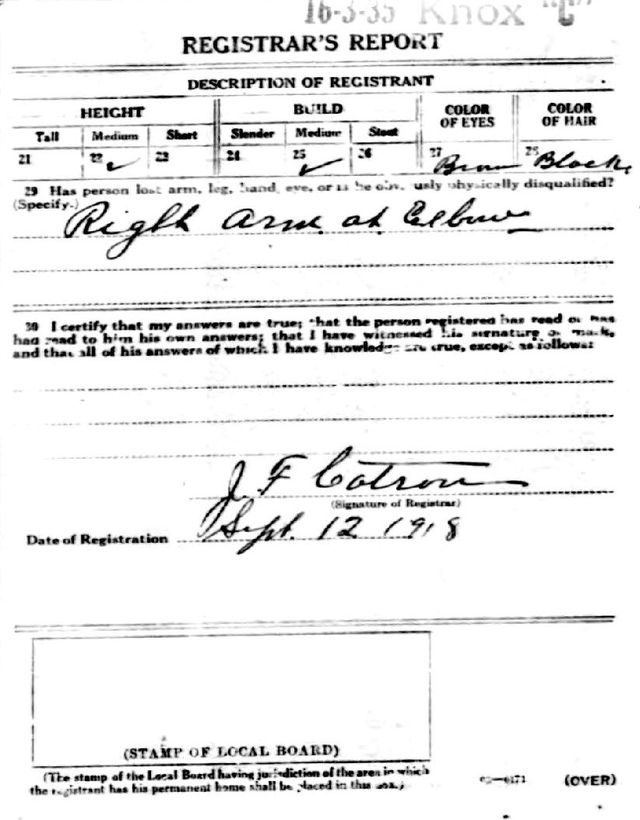 16-3-35 Knox "C"
REGISTRAR'S REPORT
DESCRIPTION OF REGISTRANT
HEIGHT BUILD COLOR OF EYES COLOR OF HAIR
Tall Medium Short Slender Medium Stout
21 22 ✓ 23 24 25 ✓ 26 27 Brown 28 Black
29 Has person lost arm, leg, hand, eye, or is he obviously physically disqualified?
(Specify.) Right Arm at Elbow
30 I certify that my answers are true; that the person registered has read or has
had read to him his own answers; that I have witnessed his signature or mark,
and that all of his answers of which I have knowledge are true, except as follows:
J. F. Catron
(Signature of Registrar)
Date of Registration Sept. 12 1918
(STAMP OF LOCAL BOARD)
(The stamp of the Local Board having jurisdiction of the area in which
the registrant has his permanent home shall be placed in this box.)
(OVER)